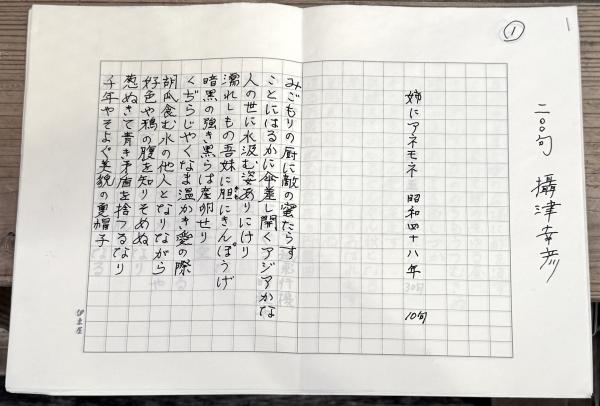 ①
二〇〇句 攝津幸彦
姉にアネモネ 昭和四十八年 30句 10句
みごもりの厨に敵の蜜たらす
ことにはるかに傘差し開くアジアかな
人の世に水汲む姿ありにけり
濡れしもの吾妹に胆にきんぽうげ
暗黒の強き黒らは産卵せり
くぢらじやくなま温かき愛の際
胡瓜食む水の他人となりながら
好色や鴉の腹を知りそめぬ
葱ぬきて青き矛盾を捨つるなり
千年やそよぐ美貌の夏帽子
伊東屋